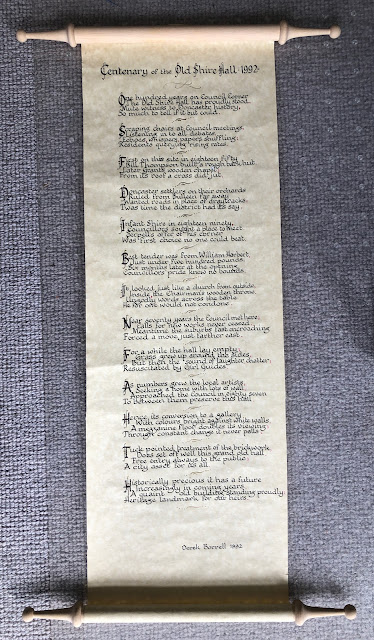 Centenary of the Old Shire Hall 1992
One hundred years on Council Corner
The Old Shire Hall has proudly stood.
Mute witness to Doncaster history,
So much to tell if it but could.
Scraping chairs at Council meetings,
Listening in to all debates,
whispers, papers shuffling,
Residents querying rising rates.
First on this site in eighteen fifty
Bill Thompson built a rough bark hut.
Later grants wooden chapel
From its roof a cross did jut.
Doncaster settlers on their orchards
Ruled from Bulleen far away
Wanted roads in place of
'Twas time the district had its say
Infant Shire in eighteen ninety,
Councillors sought a place to meet
offer of his corner
Was first choice no one could beat.
Best tender was from William Herbert,
Just under five hundred pounds.
Six months later at the opening
Councillors' pride knew no bounds.
It looked just like a church from outside,
Inside, the Chairman's wooden throne.
words across the table
He for one would not condone.
Near seventy years the Council met here,
Calls for new works never ceased.
Meantime the suburbs fast encroaching
Forced a move just farther east.
For a while the hall lay empty,
Grass grew up around the sides,
But then the sound of laughter, chatter,
Resuscitated by Girl Guides.
As numbers grew the local artists,
Seeking a home with lots of wall
Approached the Council in eighty seven
To between them preserve this hall
Hence, its conversion to a gallery
With colours bright against white walls.
A mezzanine floor doubles its viewing
Through constant change it never palls.
Tuck pointed treatment of the brickwork
Does set off well this grand old hall
Free entry always to the public
A city asset for us all.
Historically precious it has a future
Increasingly in coming years.
A quaint old building standing proudly
Heritage landmark for our heirs.
Derek 1992